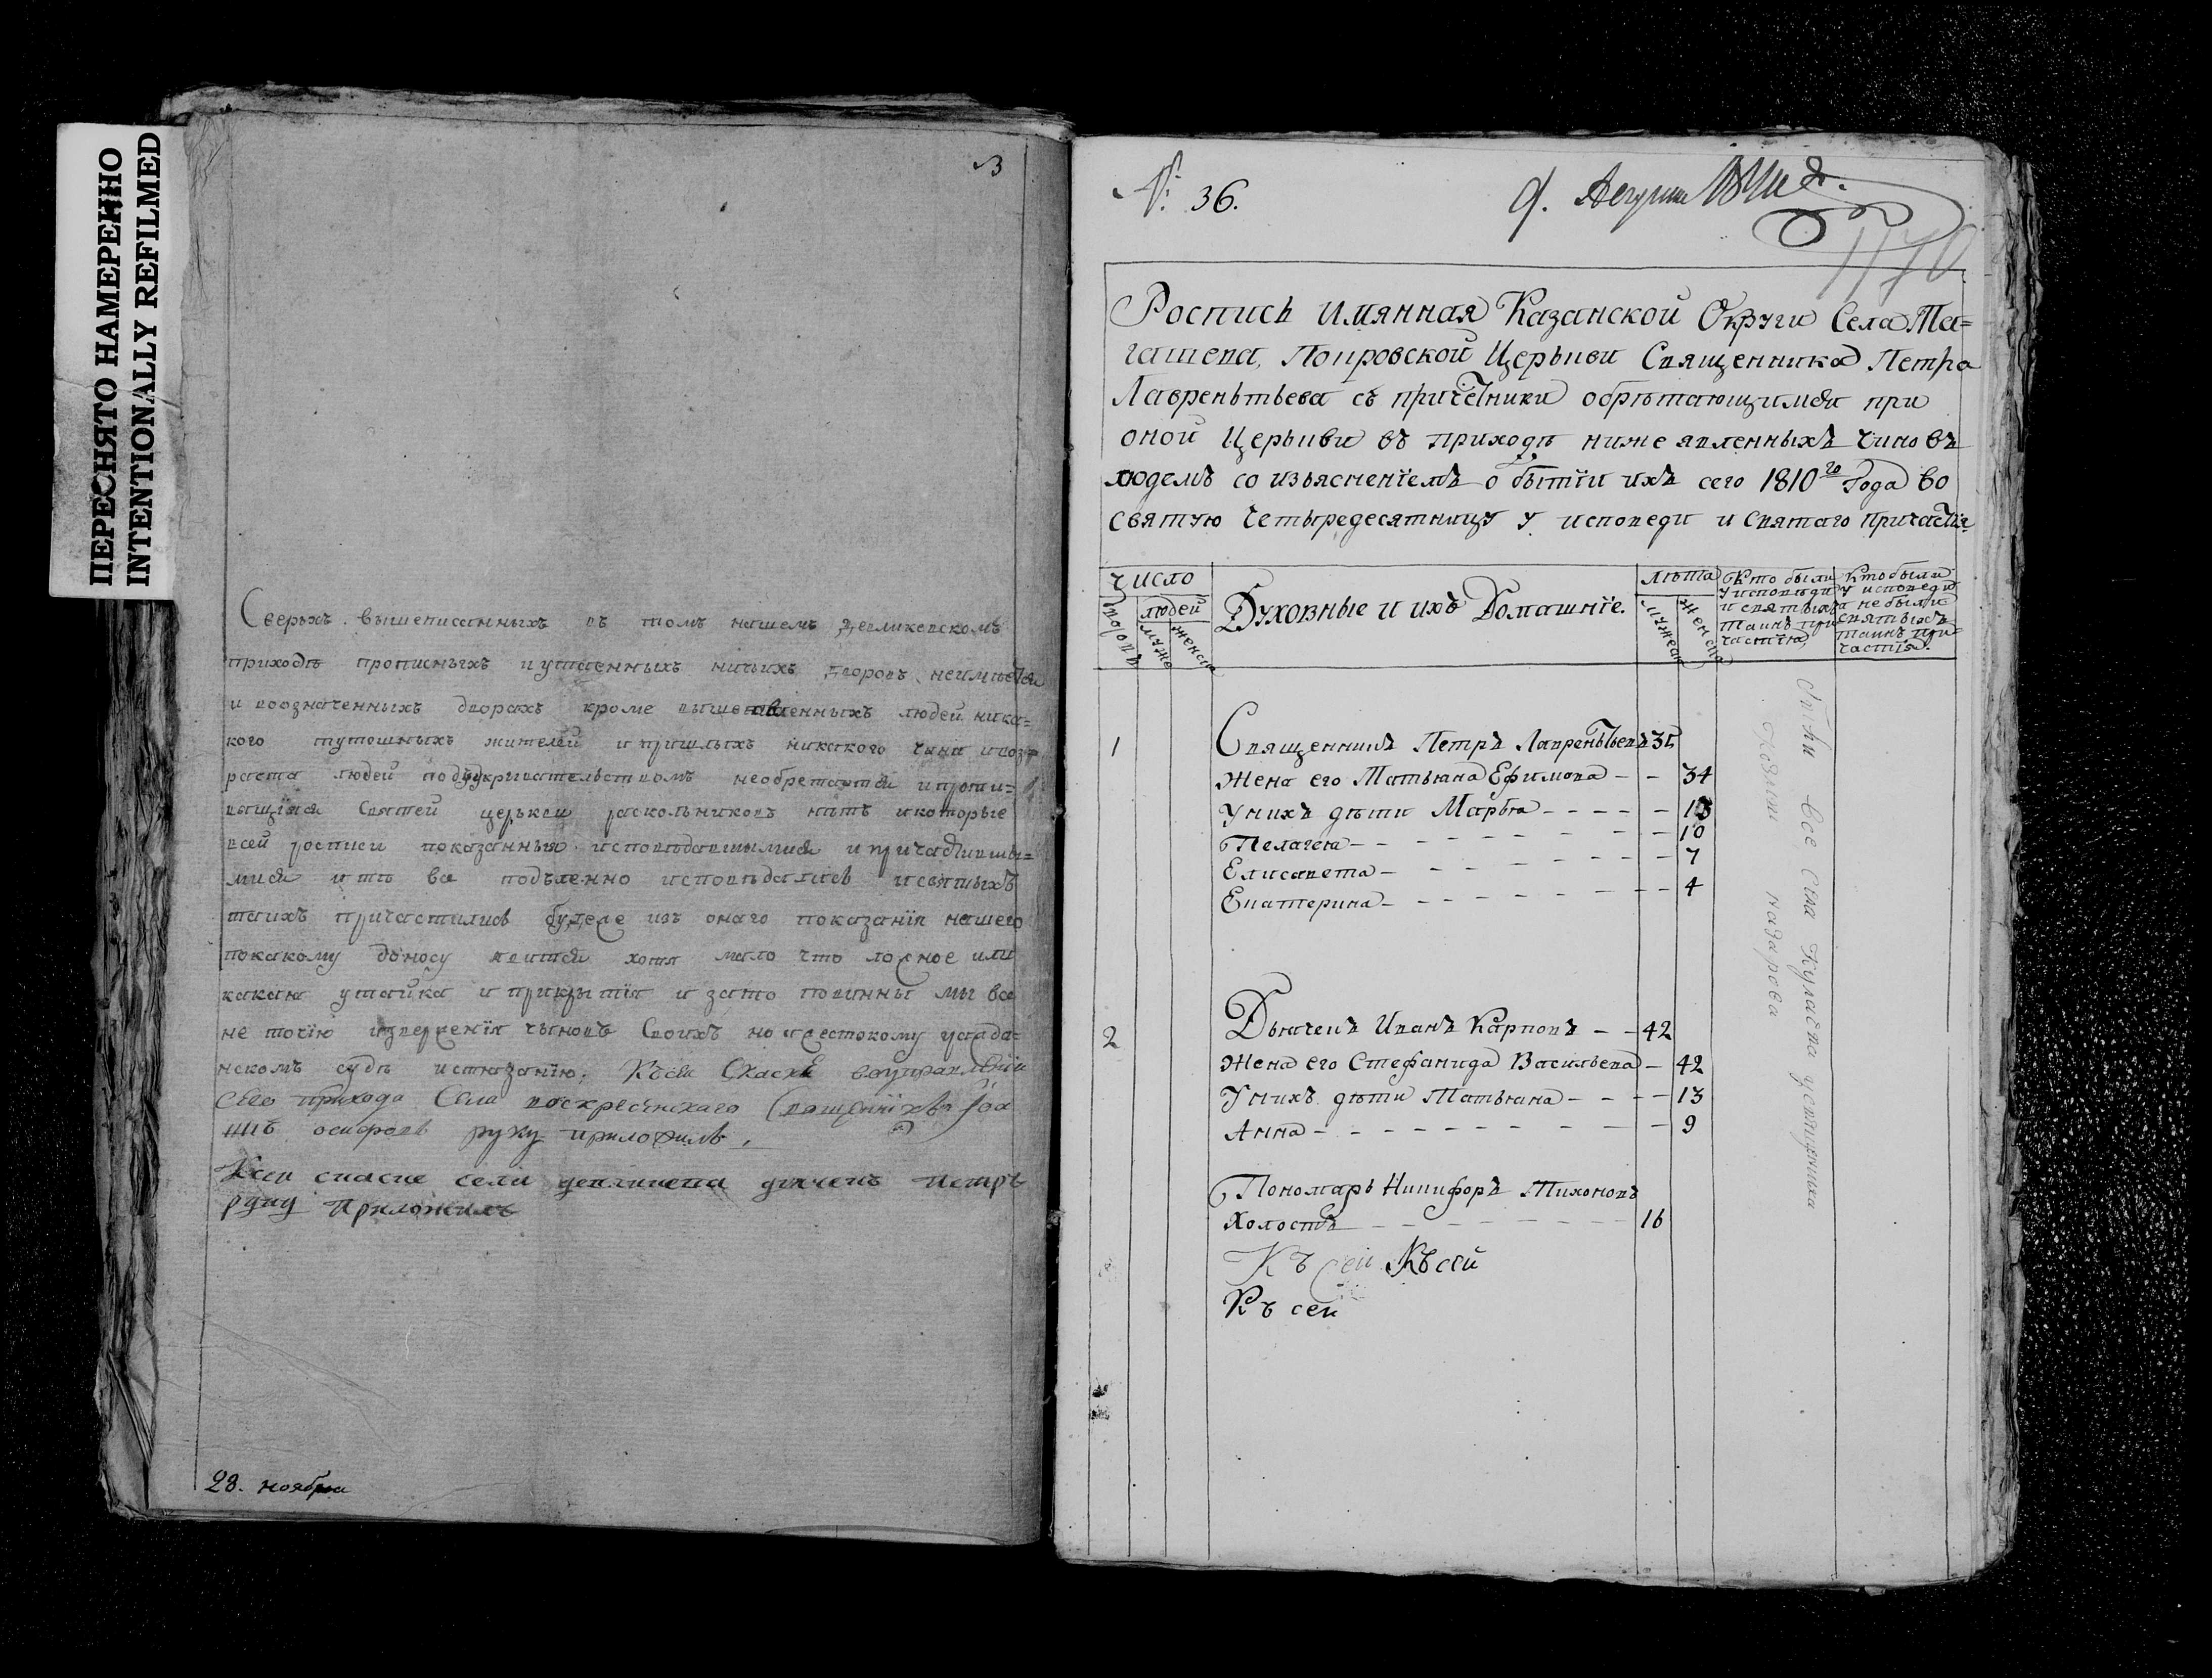 ПЕРЕСНЯТО НАМЕРЕННО
INTENTIONALLY REFILMED
Сверхъ вышеписанныхъ въ томъ нашемъ Девликевскомъ
приходѣ прописныхъ и утаенныхъ ничьихъ дворовъ неимѣется
и воозначенныхъ дворахъ кроме вышеявленныхъ людей ника=
кого тутошныхъ жителей и пришлыхъ никакого чина и воз=
раста людей подъукрывательствомъ необретается и проти=
вящихся святей церькви раскольниковъ нѣтъ и которые
всей росписи показанныя исповѣдавшимися и причастивши=
мися и тѣ все подъленно исповѣдались и святыхъ
таинъ причастились буде же изъ онаго показанія нашего
покакому доносу явится хотя мало что ложное или
какая утайка и прикрытія и зато повинны мы все
не точію изверженія чиновъ своихъ но и жестокому уграда=
нскомъ судѣ истязанію. Къ сей сказке воуправленіи
сего прихода села воскресенскаго священникъ Іоа
ннъ осиповъ руку приложилъ.
Ксеи скаске села девликева дьячекъ петръ
руку приложилъ
28. ноября
№ 36.
Роспись имянная Казанской Округи Села Та=
гашева, Покровской Церькви Священника Петра
Лавреньтьева съ причетники обрѣтающимся при
оной Церькви въ приходѣ нижеявленныхъ чиновъ
людемъ со изъясненіемъ о бытіи ихъ сего 1810го Года во
святую четыредесятницу у исповеди и святаго причастія
Число
людей
дворовъ
муже
женска
Духовные и ихъ Домашніе.
лѣта
мужеска
женска
Кто были у исповѣди и святыхъ таинъ причастію
Кто были у исповеди а не были святыхъ таинъ причастія.
1 Священникъ Петръ Лавреньтьевъ 35
Жена его Татьяна Ефимова - - 34
Унихъ дѣти Марѳа - - - - - 13
Пелагея - - - - - - - 10
Елисавета - - - - - - - 7
Екатерина - - - - - - - 4
2 Дьячекъ Иванъ Карповъ - - 42
Жена его Стефанида Васильева - 42
Унихъ дѣти Татьяна - - - - 13
Анна - - - - - - - - - 9
Пономарь Никифоръ Тихоновъ
Холостъ - - - - - - - - 16
Къ сей Къ сей
Къ сеи